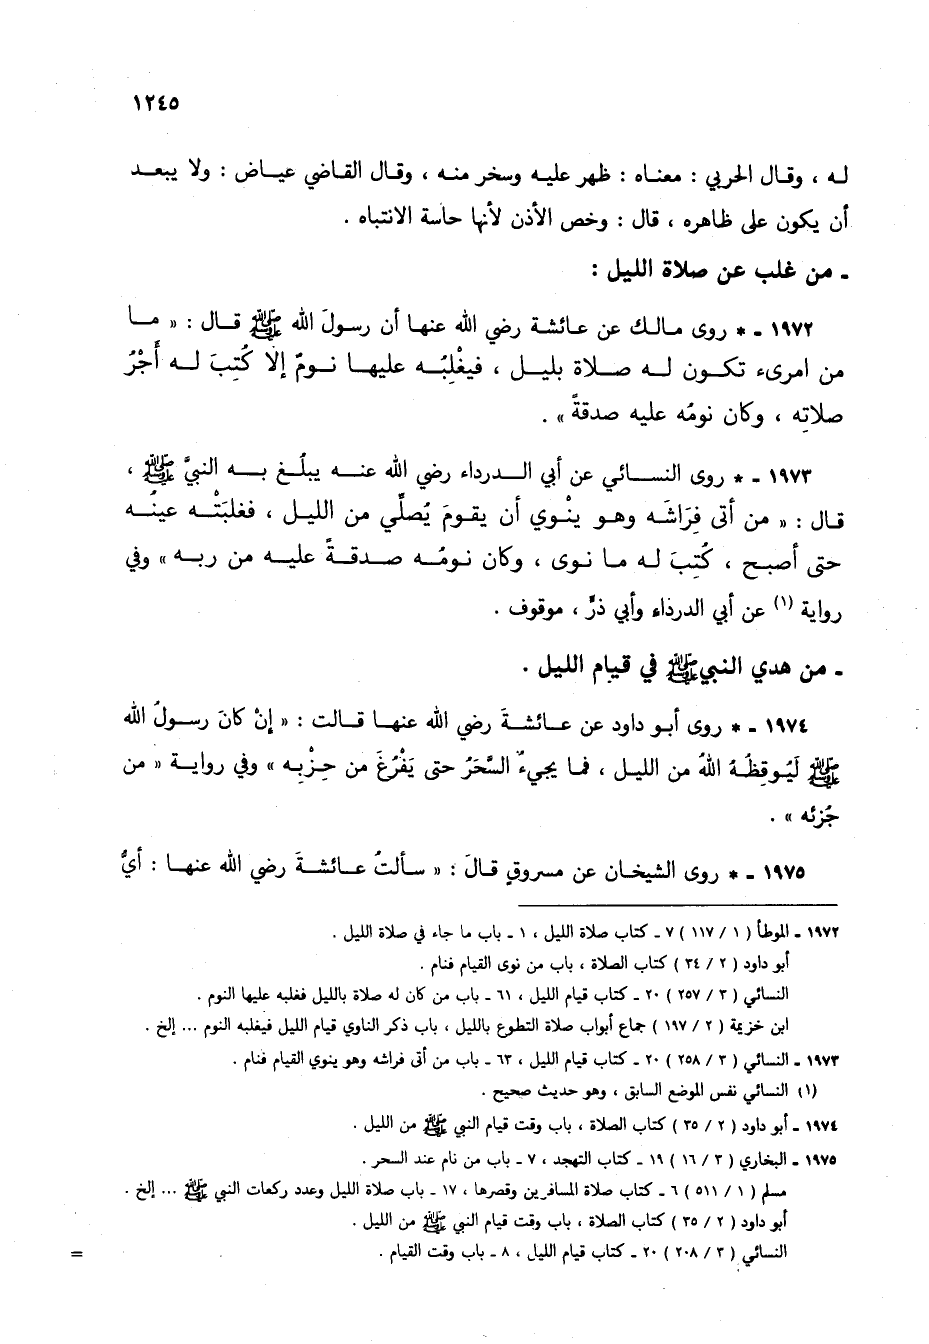 ١٢٤٥
له ، وقال الحربي : معناه : ظهر عليه وسخر منه ، وقال القاضي عياض : ولا يبعد
أن يكون على ظاهره ، قال : وخص الأذن لأنها حاسة الانتباه .
ـ من غلب عن صلاة الليل :
١٩٧٢ ـ * روى مالك عن عائشة رضي الله عنها أن رسولَ الله ﷺ قال : « ما
من امرىء تكون له صلاة بليل ، فيغْلِبُه عليها نومٌ إلا كُتِبَ له أَجْرُ
صلاتِه ، وكان نومُه عليه صدقةً » .
١٩٧٣ ـ * روى النسائي عن أبي الدرداء رضي الله عنه يبلُغ به النبيَّ ﷺ ،
قال : « من أتى فِرَاشَه وهو ينْوي أن يقومَ يُصلِّي من الليل ، فغلبَتْه عينُه
حتى أصبح ، كُتِبَ له ما نوى ، وكان نومُه صدقةً عليه من ربه » وفي
رواية (١) عن أبي الدرذاء وأبي ذرٍّ ، موقوف .
ـ من هدي النبي ﷺ في قيام الليل .
١٩٧٤ ـ * روى أبو داود عن عائشةَ رضي الله عنها قالت : « إنْ كانَ رسولُ الله
ﷺ لَيُوقِظُهُ اللهُ من الليل ، فما يجيءُ السَّحَرُ حتى يَفْرُغَ من حِزْبِه » وفي رواية « من
جُزئه » .
١٩٧٥ ـ * روى الشيخان عن مسروقٍ قالَ : « سألتُ عائشةَ رضي الله عنها : أيُّ
١٩٧٢ ـ الموطأ ( ١ / ١١٧ ) ٧ ـ كتاب صلاة الليل ، ١ ـ باب ما جاء في صلاة الليل .
أبو داود ( ٢ / ٣٤ ) كتاب الصلاة ، باب من نوى القيام فنام .
النسائي ( ٣ / ٢٥٧ ) ٢٠ ـ كتاب قيام الليل ، ٦١ ـ باب من كان له صلاة بالليل فغلبه عليها النوم .
ابن خزيمة ( ٢ / ١٩٧ ) جماع أبواب صلاة التطوع بالليل ، باب ذكر الناوي قيام الليل فيغلبه النوم ... إلخ .
١٩٧٣ ـ النسائي ( ٣ / ٢٥٨ ) ٢٠ ـ كتاب قيام الليل ، ٦٣ ـ باب من أتى فراشه وهو ينوي القيام فنام .
(١) النسائي نفس الموضع السابق ، وهو حديث صحيح .
١٩٧٤ ـ أبو داود ( ٢ / ٣٥ ) كتاب الصلاة ، باب وقت قيام النبي ﷺ من الليل .
١٩٧٥ ـ البخاري ( ٣ / ١٦ ) ١٩ ـ كتاب التهجد ، ٧ ـ باب من نام عند السحر .
مسلم ( ١ / ٥١١ ) ٦ ـ كتاب صلاة المسافرين وقصرها ، ١٧ ـ باب صلاة الليل وعدد ركعات النبي ﷺ ... إلخ .
أبو داود ( ٢ / ٣٥ ) كتاب الصلاة ، باب وقت قيام النبي ﷺ من الليل .
النسائي ( ٣ / ٢٠٨ ) ٢٠ ـ كتاب قيام الليل ، ٨ ـ باب وقت القيام .
=